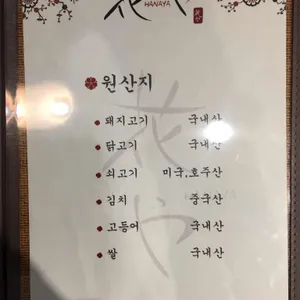 花や
HANAYA
원산지
돼지고기 국내산
닭고기 국내산
쇠고기 미국,호주산
김치 중국산
고등어 국내산
쌀 국내산
花や